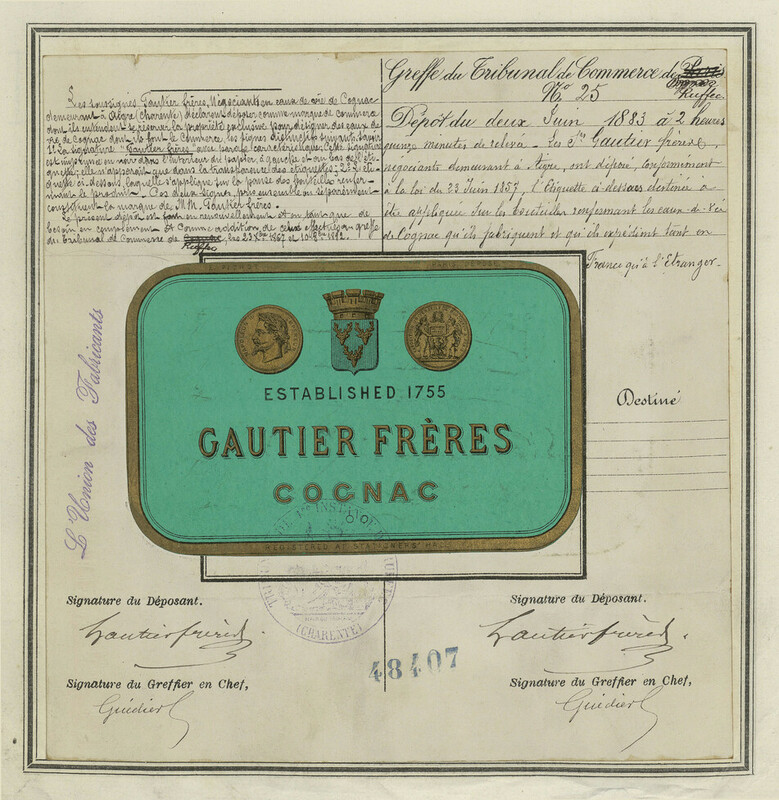 Les soussignés Gautier frères, Négociants en eaux de vie de Cognac
demeurant à Aigre (Charente) déclarent déposer comme marque de commerce
dont ils entendent se réserver la propriété exclusive pour désigner des eaux de
vie de Cognac dont ils font le commerce, les signes distinctifs suivants, savoir
1° La signature "Gautier frères" avec parafe caractéristique. Cette signature
est imprimée en noir dans l'intérieur du papier à gauche et au bas de l'éti-
quette; elle n'apparait que dans la transparence des étiquettes; 2° L'éti-
quette ci-dessous, laquelle s'applique sur la panse des bouteilles renfer-
mant le produit. Ces deux signes, pris ensemble ou séparément
constituent la marque de MM. Gautier frères.
Le présent dépôt est fait en renouvellement et en tant que de
besoin en complément et comme addition de ceux effectués au greffe
du tribunal de Commerce de Ruffec, les 23 1867 et 10 1882.
Greffe du Tribunal de Commerce de Paris
Ruffec
No 25
Dépôt du deux Juin 1883 à 2 heures
quinze minutes de relevée. Les Srs Gautier frères,
négociants demeurant à Aigre, ont déposé, conformément
à la loi du 23 Juin 1857, l'Etiquette ci-dessous destinée à
être appliquée sur les bouteilles renfermant les eaux-de-vie
de Cognac qu'ils fabriquent et qu'ils expédient tant en
France qu'à l'Etranger.
L'Union des Fabricants
ESTABLISHED 1755
GAUTIER FRÈRES
COGNAC
REGISTERED AT STATIONERS' HALL
Destiné
(CHARENTE)
Signature du Déposant.
Gautier frères
Signature du Déposant.
Gautier frères
48407
Signature du Greffier en Chef,
Guédier
Signature du Greffier en Chef,
Guédier